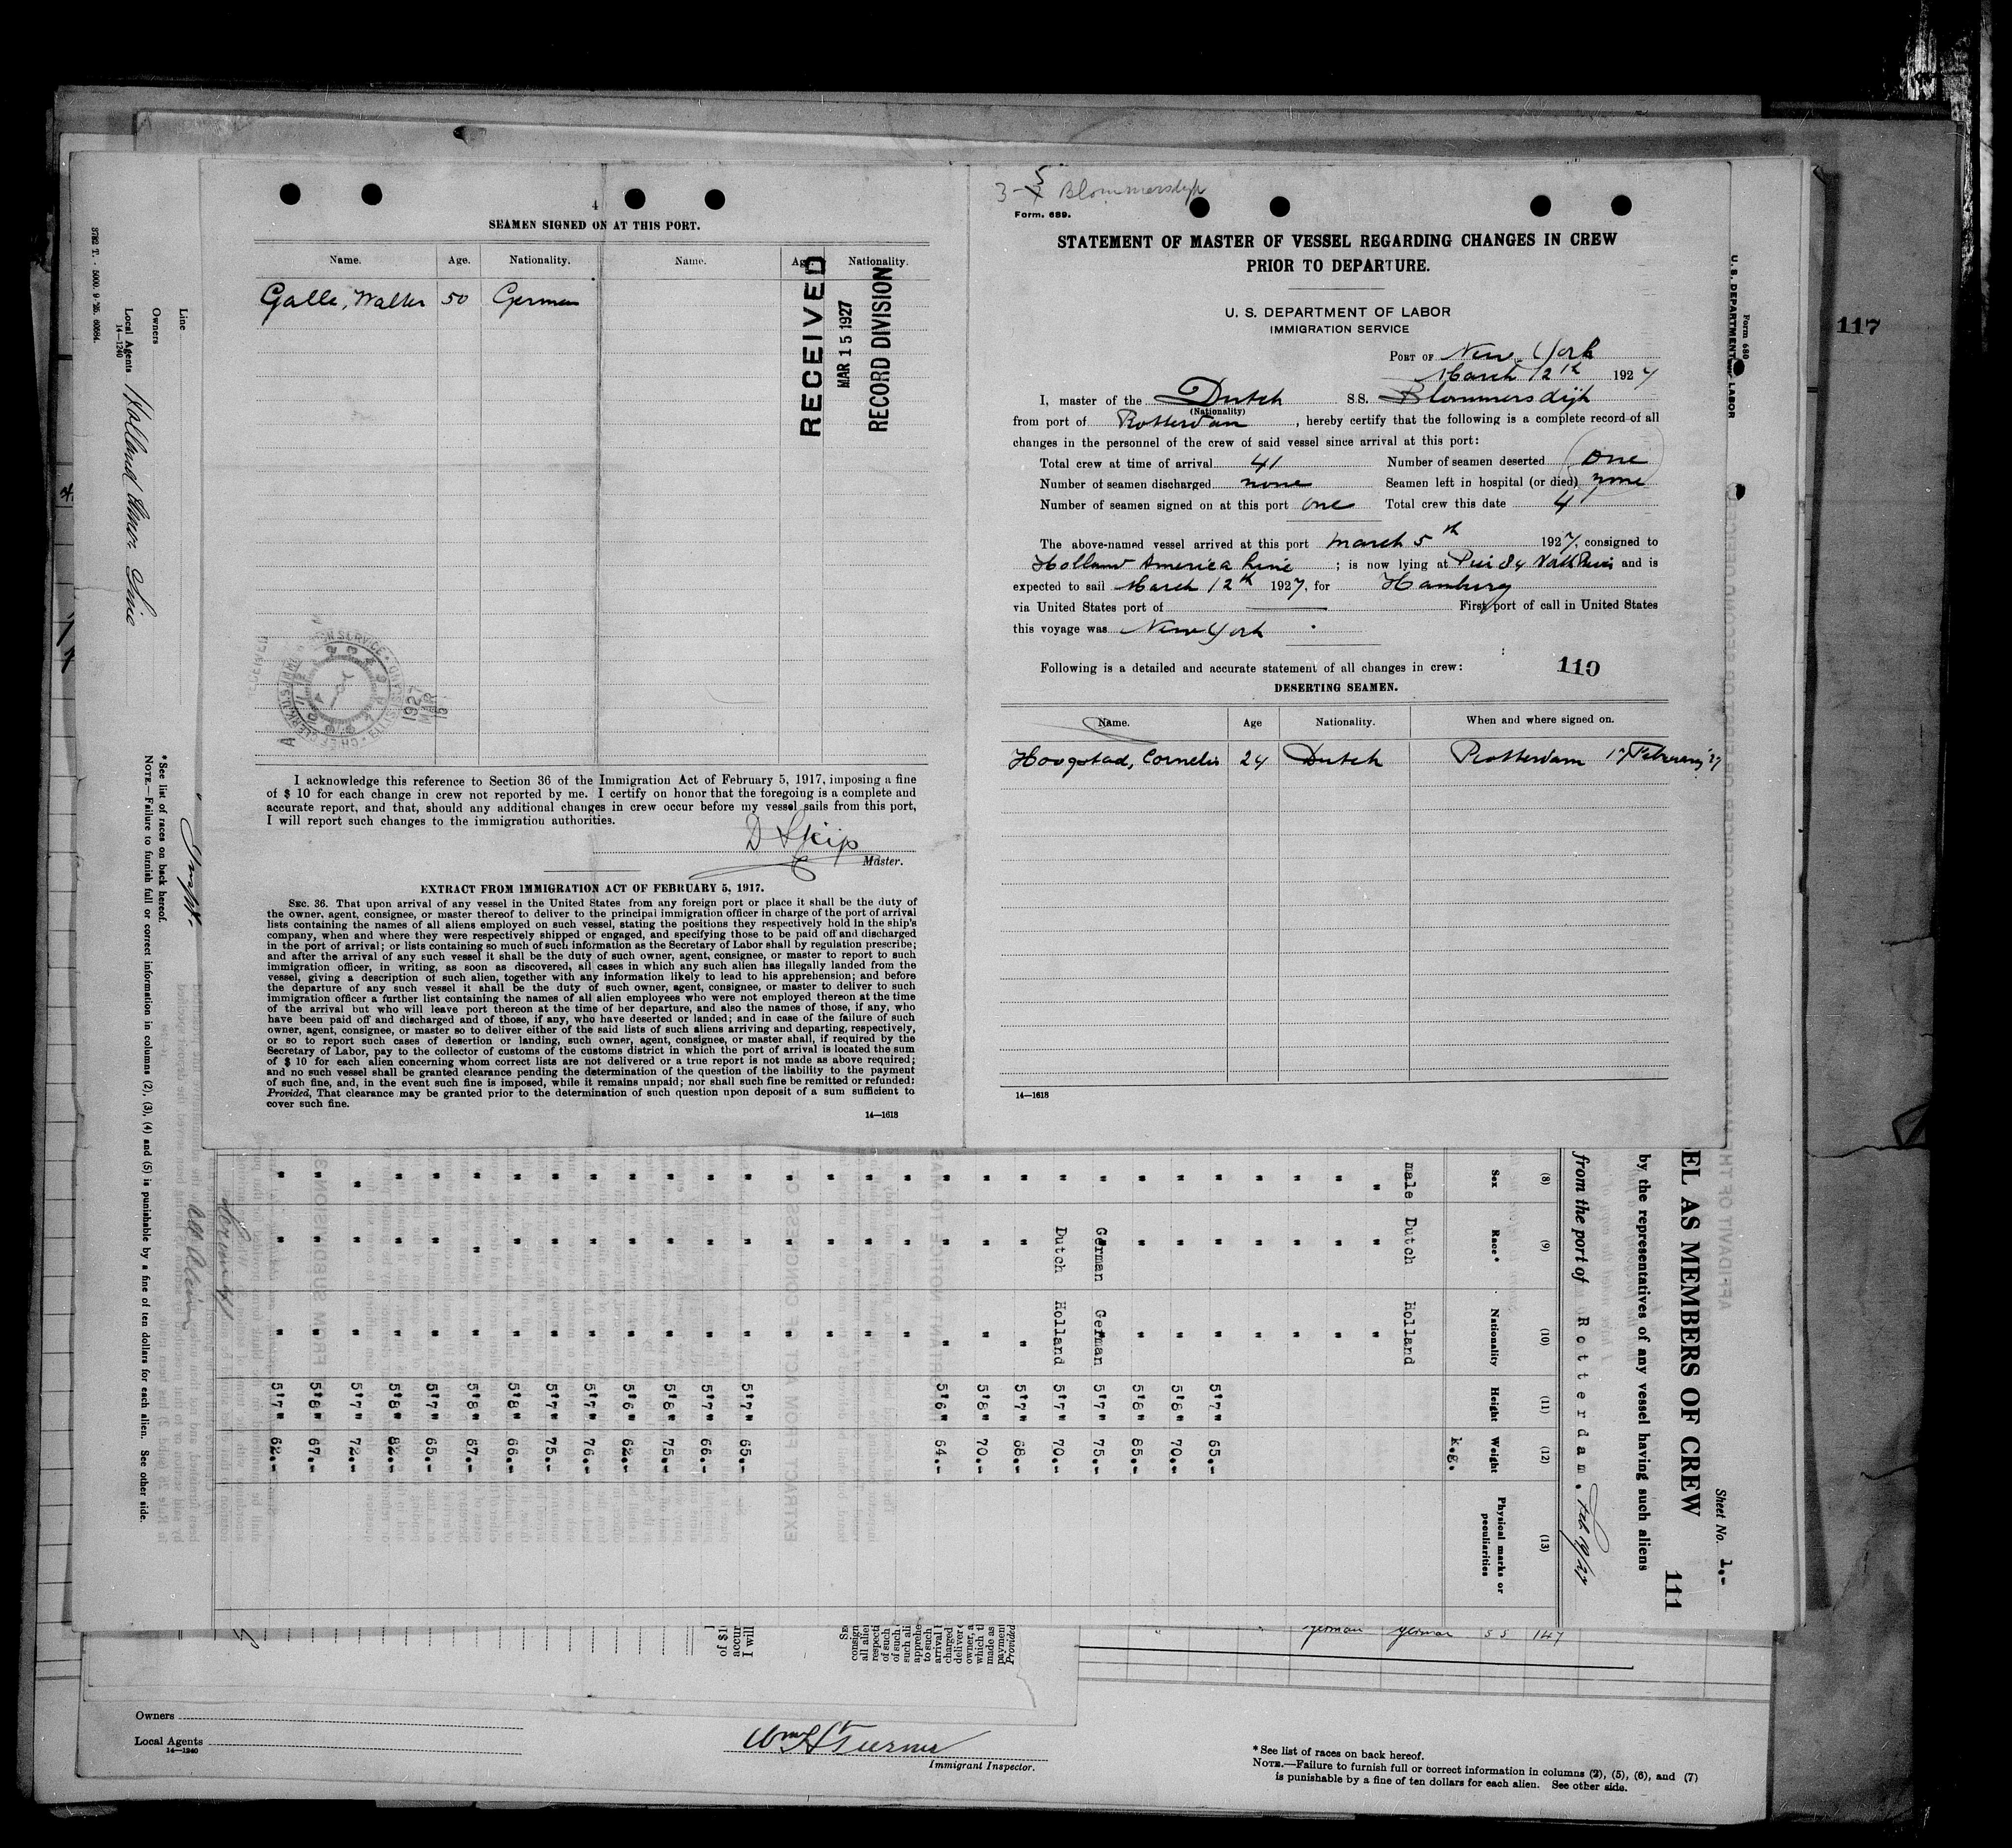 4
SEAMEN SIGNED ON AT THIS PORT.
Name. Age. Nationality. Name. Age. Nationality.
Galle, Walter 50 German
RECEIVED
MAR 15 1927
RECORD DIVISION
I acknowledge this reference to Section 36 of the Immigration Act of February 5, 1917, imposing a fine
of $ 10 for each change in crew not reported by me. I certify on honor that the foregoing is a complete and
accurate report, and that, should any additional changes in crew occur before my vessel sails from this port,
I will report such changes to the immigration authorities.
Master.
EXTRACT FROM IMMIGRATION ACT OF FEBRUARY 5, 1917.
SEC. 36. That upon arrival of any vessel in the United States from any foreign port or place it shall be the duty of
the owner, agent, consignee, or master thereof to deliver to the principal immigration officer in charge of the port of arrival
lists containing the names of all aliens employed on such vessel, stating the positions they respectively hold in the ship's
company, when and where they were respectively shipped or engaged, and specifying those to be paid off and discharged
in the port of arrival; or lists containing so much of such information as the Secretary of Labor shall by regulation prescribe;
and after the arrival of any such vessel it shall be the duty of such owner, agent, consignee, or master to report to such
immigration officer, in writing, as soon as discovered, all cases in which any such alien has illegally landed from the
vessel, giving a description of such alien, together with any information likely to lead to his apprehension; and before
the departure of any such vessel it shall be the duty of such owner, agent, consignee, or master to deliver to such
immigration officer a further list containing the names of all alien employees who were not employed thereon at the time
of the arrival but who will leave port thereon at the time of her departure, and also the names of those, if any, who
have been paid off and discharged and of those, if any, who have deserted or landed; and in case of the failure of such
owner, agent, consignee, or master so to deliver either of the said lists of such aliens arriving and departing, respectively,
or so to report such cases of desertion or landing, such owner, agent, consignee, or master shall, if required by the
Secretary of Labor, pay to the collector of customs of the customs district in which the port of arrival is located the sum
of $ 10 for each alien concerning whom correct lists are not delivered or a true report is not made as above required;
and no such vessel shall be granted clearance pending the determination of the question of the liability to the payment
of such fine, and, in the event such fine is imposed, while it remains unpaid; nor shall such fine be remitted or refunded:
Provided, That clearance may be granted prior to the determination of such question upon deposit of a sum sufficient to
cover such fine.
14—1618
3-5 Blommersdijk
Form. 689.
STATEMENT OF MASTER OF VESSEL REGARDING CHANGES IN CREW
PRIOR TO DEPARTURE.
U. S. DEPARTMENT OF LABOR
IMMIGRATION SERVICE
PORT OF New York
March 12th 1927
I, master of the Dutch SS. Blommersdijk
(Nationality)
from port of Rotterdam, hereby certify that the following is a complete record of all
changes in the personnel of the crew of said vessel since arrival at this port:
Total crew at time of arrival 41 Number of seamen deserted one
Number of seamen discharged none Seamen left in hospital (or died) none
Number of seamen signed on at this port one Total crew this date 41
The above-named vessel arrived at this port March 5th 1927, consigned to
Holland America Line; is now lying at Pier 84 North River and is
expected to sail March 12th 1927, for Hamburg
via United States port of First port of call in United States
this voyage was New York.
Following is a detailed and accurate statement of all changes in crew:
110
DESERTING SEAMEN.
Name. Age Nationality. When and where signed on.
Hoogstad, Cornelis 24 Dutch Rotterdam 17 February '27
14—1618
117
Form 680
U. S. DEPARTMENT LABOR
3782 T. - 5000. 9-'25. 6084.
Line
Owners
Local Agents Holland Amer. Line
14—1240
*See list of races on back hereof.
NOTE.—Failure to furnish full or correct information in columns (2), (3), (4) and (5) is punishable by a fine of ten dollars for each alien. See other side.
Sheet No. 1.-
111
EL AS MEMBERS OF CREW
by the representatives of any vessel having such aliens
from the port of Rotterdam. Feb 19/27
(8) (9) (10) (11) (12) (13)
Sex Race* Nationality Height Weight Physical marks or peculiarities
k.g.
male Dutch Holland
" " "
" " "
" " "
" " "
" " " 5'7" 65.-
" " " 5'8" 70.-
" " " 5'8" 85.-
" German German 5'7" 75.-
" Dutch Holland 5'7" 70.-
" " " 5'7" 68.-
" " " 5'8" 70.-
" " " 5'6" 64.-
" " "
" " "
" " "
" " "
" " " 5'7" 65.-
" " " 5'7" 66.-
" " " 5'8" 75.-
" " " 5'6" 62.-
" " " 5'7" 76.-
" " " 5'7" 75.-
" " " 5'8" 66.-
" " " 5'8" 67.-
" " " 5'7" 65.-
" " " 5'8" 82.-
" " " 5'7" 72.-
" " " 5'8" 67.-
" " " 5'7" 62.-
German German 55 147
Owners
Local Agents
14—1240
Immigrant Inspector.
*See list of races on back hereof.
NOTE.—Failure to furnish full or correct information in columns (2), (5), (6), and (7)
is punishable by a fine of ten dollars for each alien. See other side.